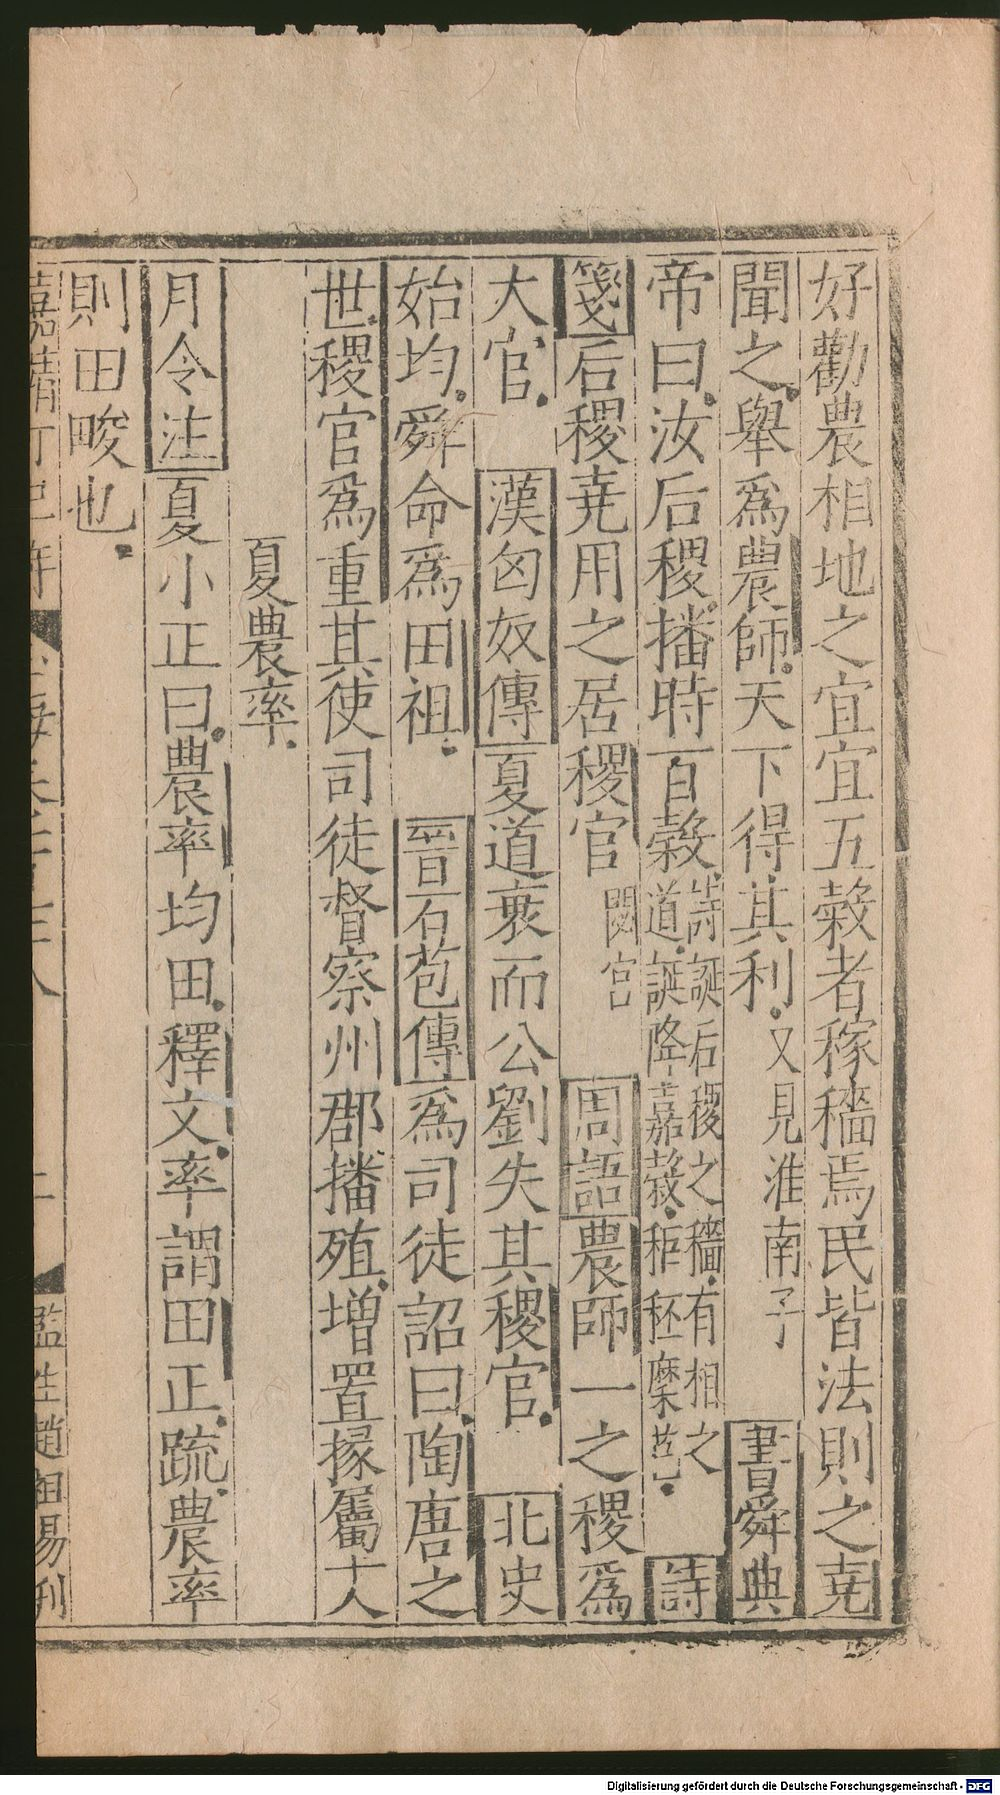 好勸農相地之宜宜五榖者稼穡焉民皆法則之堯
聞之舉爲農師天下得其利又見淮南子 書舜典
帝曰汝后稷播時百榖詩誕后稷之穡有相之
道誕降嘉榖秬秠穈芑 詩
箋后稷堯用之居稷官閟宮 周語農師一之稷爲
大官 漢匈奴傳夏道衰而公劉失其稷官 北史
始均舜命爲田祖 晉石苞傳爲司徒詔曰陶唐之
世稷官爲重其使司徒督察州郡播殖增置掾屬十人
夏農率
月令注夏小正曰農率均田釋文率謂田正疏農率
則田畯也
嘉靖丁巳年
二
監生趙祖易刊
Digitalisierung gefördert durch die Deutsche Forschungsgemeinschaft - DFG